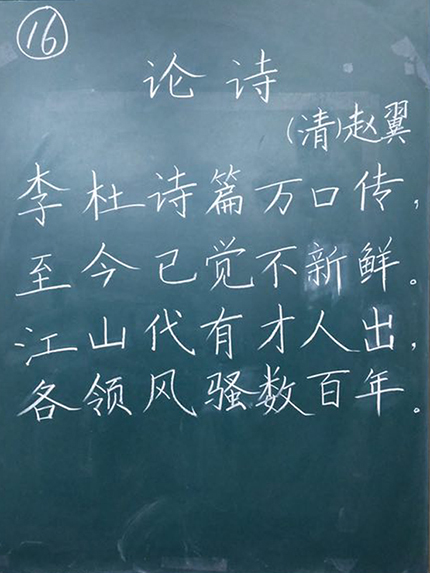 16
论诗
(清)赵翼
李杜诗篇万口传,
至今已觉不新鲜。
江山代有才人出,
各领风骚数百年。